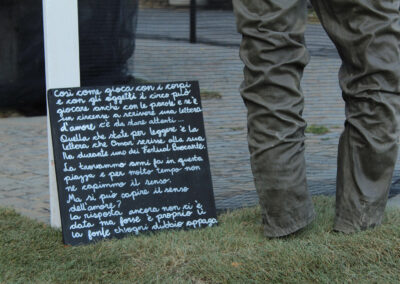 Così come gioca con i corpi
e con gli oggetti il circo può
giocare anche con le parole e se è
un circense a scrivere una lettera
d'amore c'è da star attenti...
Quella che state per leggere è la
lettera che Omar scrisse alla sua
durante uno dei Festival Brocante.
La trovammo anni fa in questa
piazza e per molto tempo non
ne capimmo il senso.
Ma si può capire il senso
dell'amore?
la risposta ancora non c'è
data ma forse è proprio lì
la fonte d'ogni